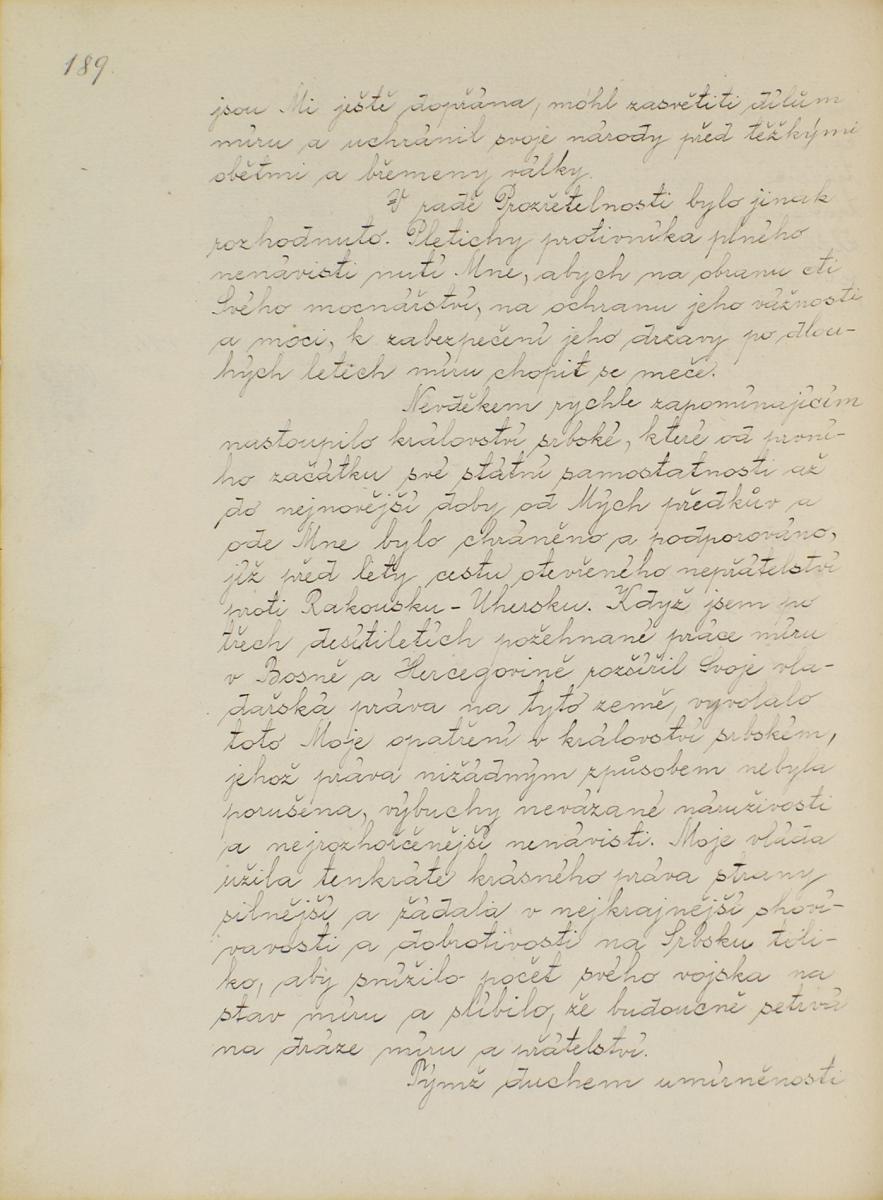 189.
jsou Mi ještě dopřána, mohl zasvětiti dílům
míru a uchránil svoje národy před těžkými
obětmi a břemeny války.
V radě Prozřetelnosti bylo jinak
rozhodnuto. Pletichy protivníka plného
nenávisti nutí Mne, abych na obranu cti
Svého mocnářství, na ochranu jeho vážnosti
a moci, k zabezpečení jeho državy po dlou-
hých letech míru chopit se meče.
Nevděkem rychle zapomínajícím
nastoupilo království srbské, které od prvni-
ho začátku své státní samostatnosti až
do nejnovější doby od Mých předkův a
ode Mne bylo chráněno a podporováno,
již před lety cestu otevřeného nepřátelství
proti Rakousku-Uhersku. Když jsem po
třech desítiletích požehnané práce míru
v Bosně a Hercegovině rozšířil Svoje vla-
dařská práva na tyto země, vyvolalo
toto Moje opatření v království srbském,
jehož práva nižádným způsobem nebyla
porušena, výbuchy nevázané náruživosti
a nejrozhořčenější nenávisti. Moje vláda
užila tenkráte krásného práva strany
silnější a žádala v nejkrajnější shoví-
vavosti a dobrotivosti na Srbsku toli-
ko, aby snížilo počet svého vojska na
stav míru a slíbilo, že budoucně setrvá
na dráze míru a přátelství.
Týmž duchem umírněnosti